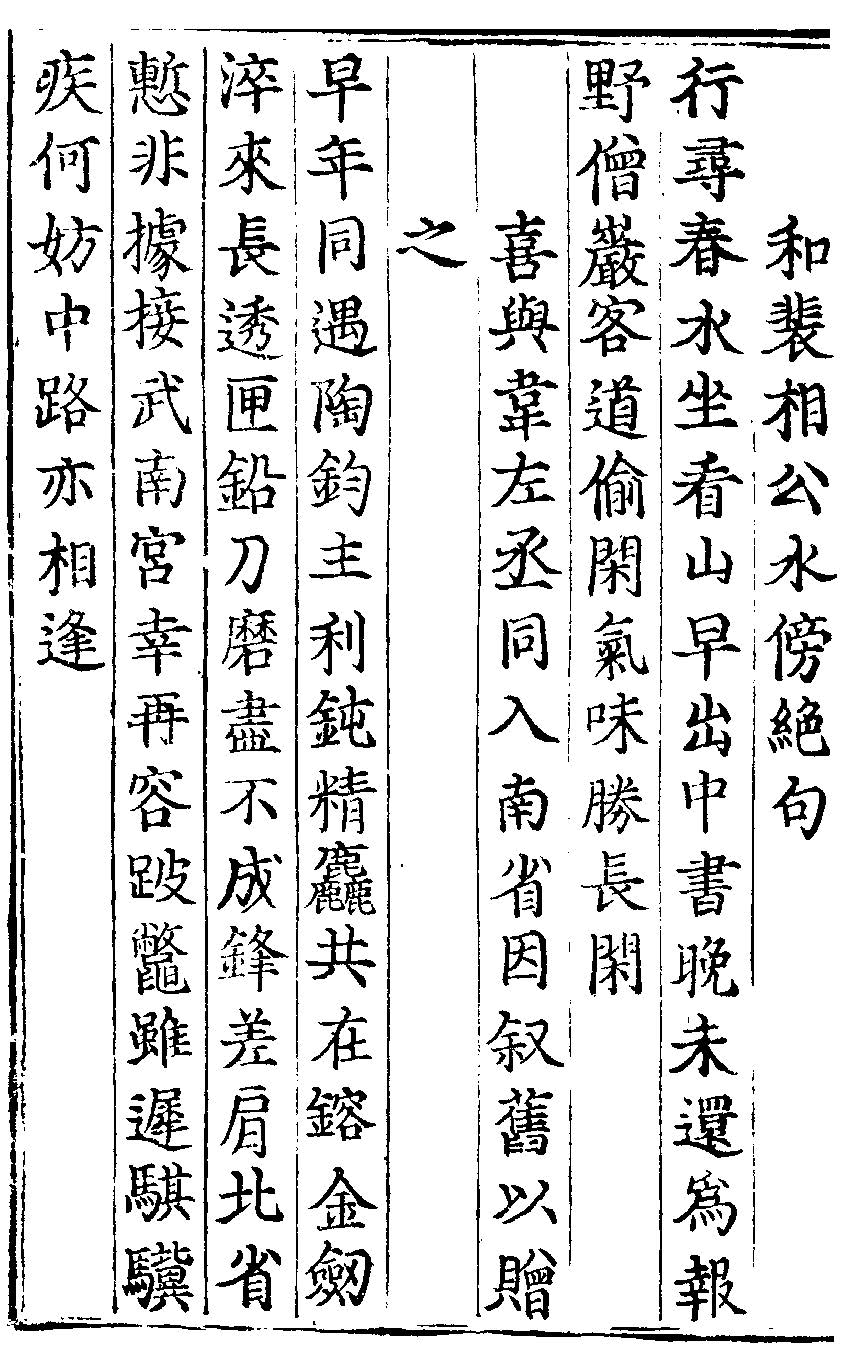 和裴相公水傍絶句
行尋春水坐看山早出中書晚未還爲報
野僧巖客道偷閑氣味勝長閑
喜與韋左丞同入南省因叙舊以贈
之
早年同遇陶鈞主利鈍精麤共在鎔金劒
淬來長透匣鉛刀磨盡不成鋒差肩北省
慙非據接武南宮幸再容跛鼈雖遲騏驥
疾何妨中路亦相逢